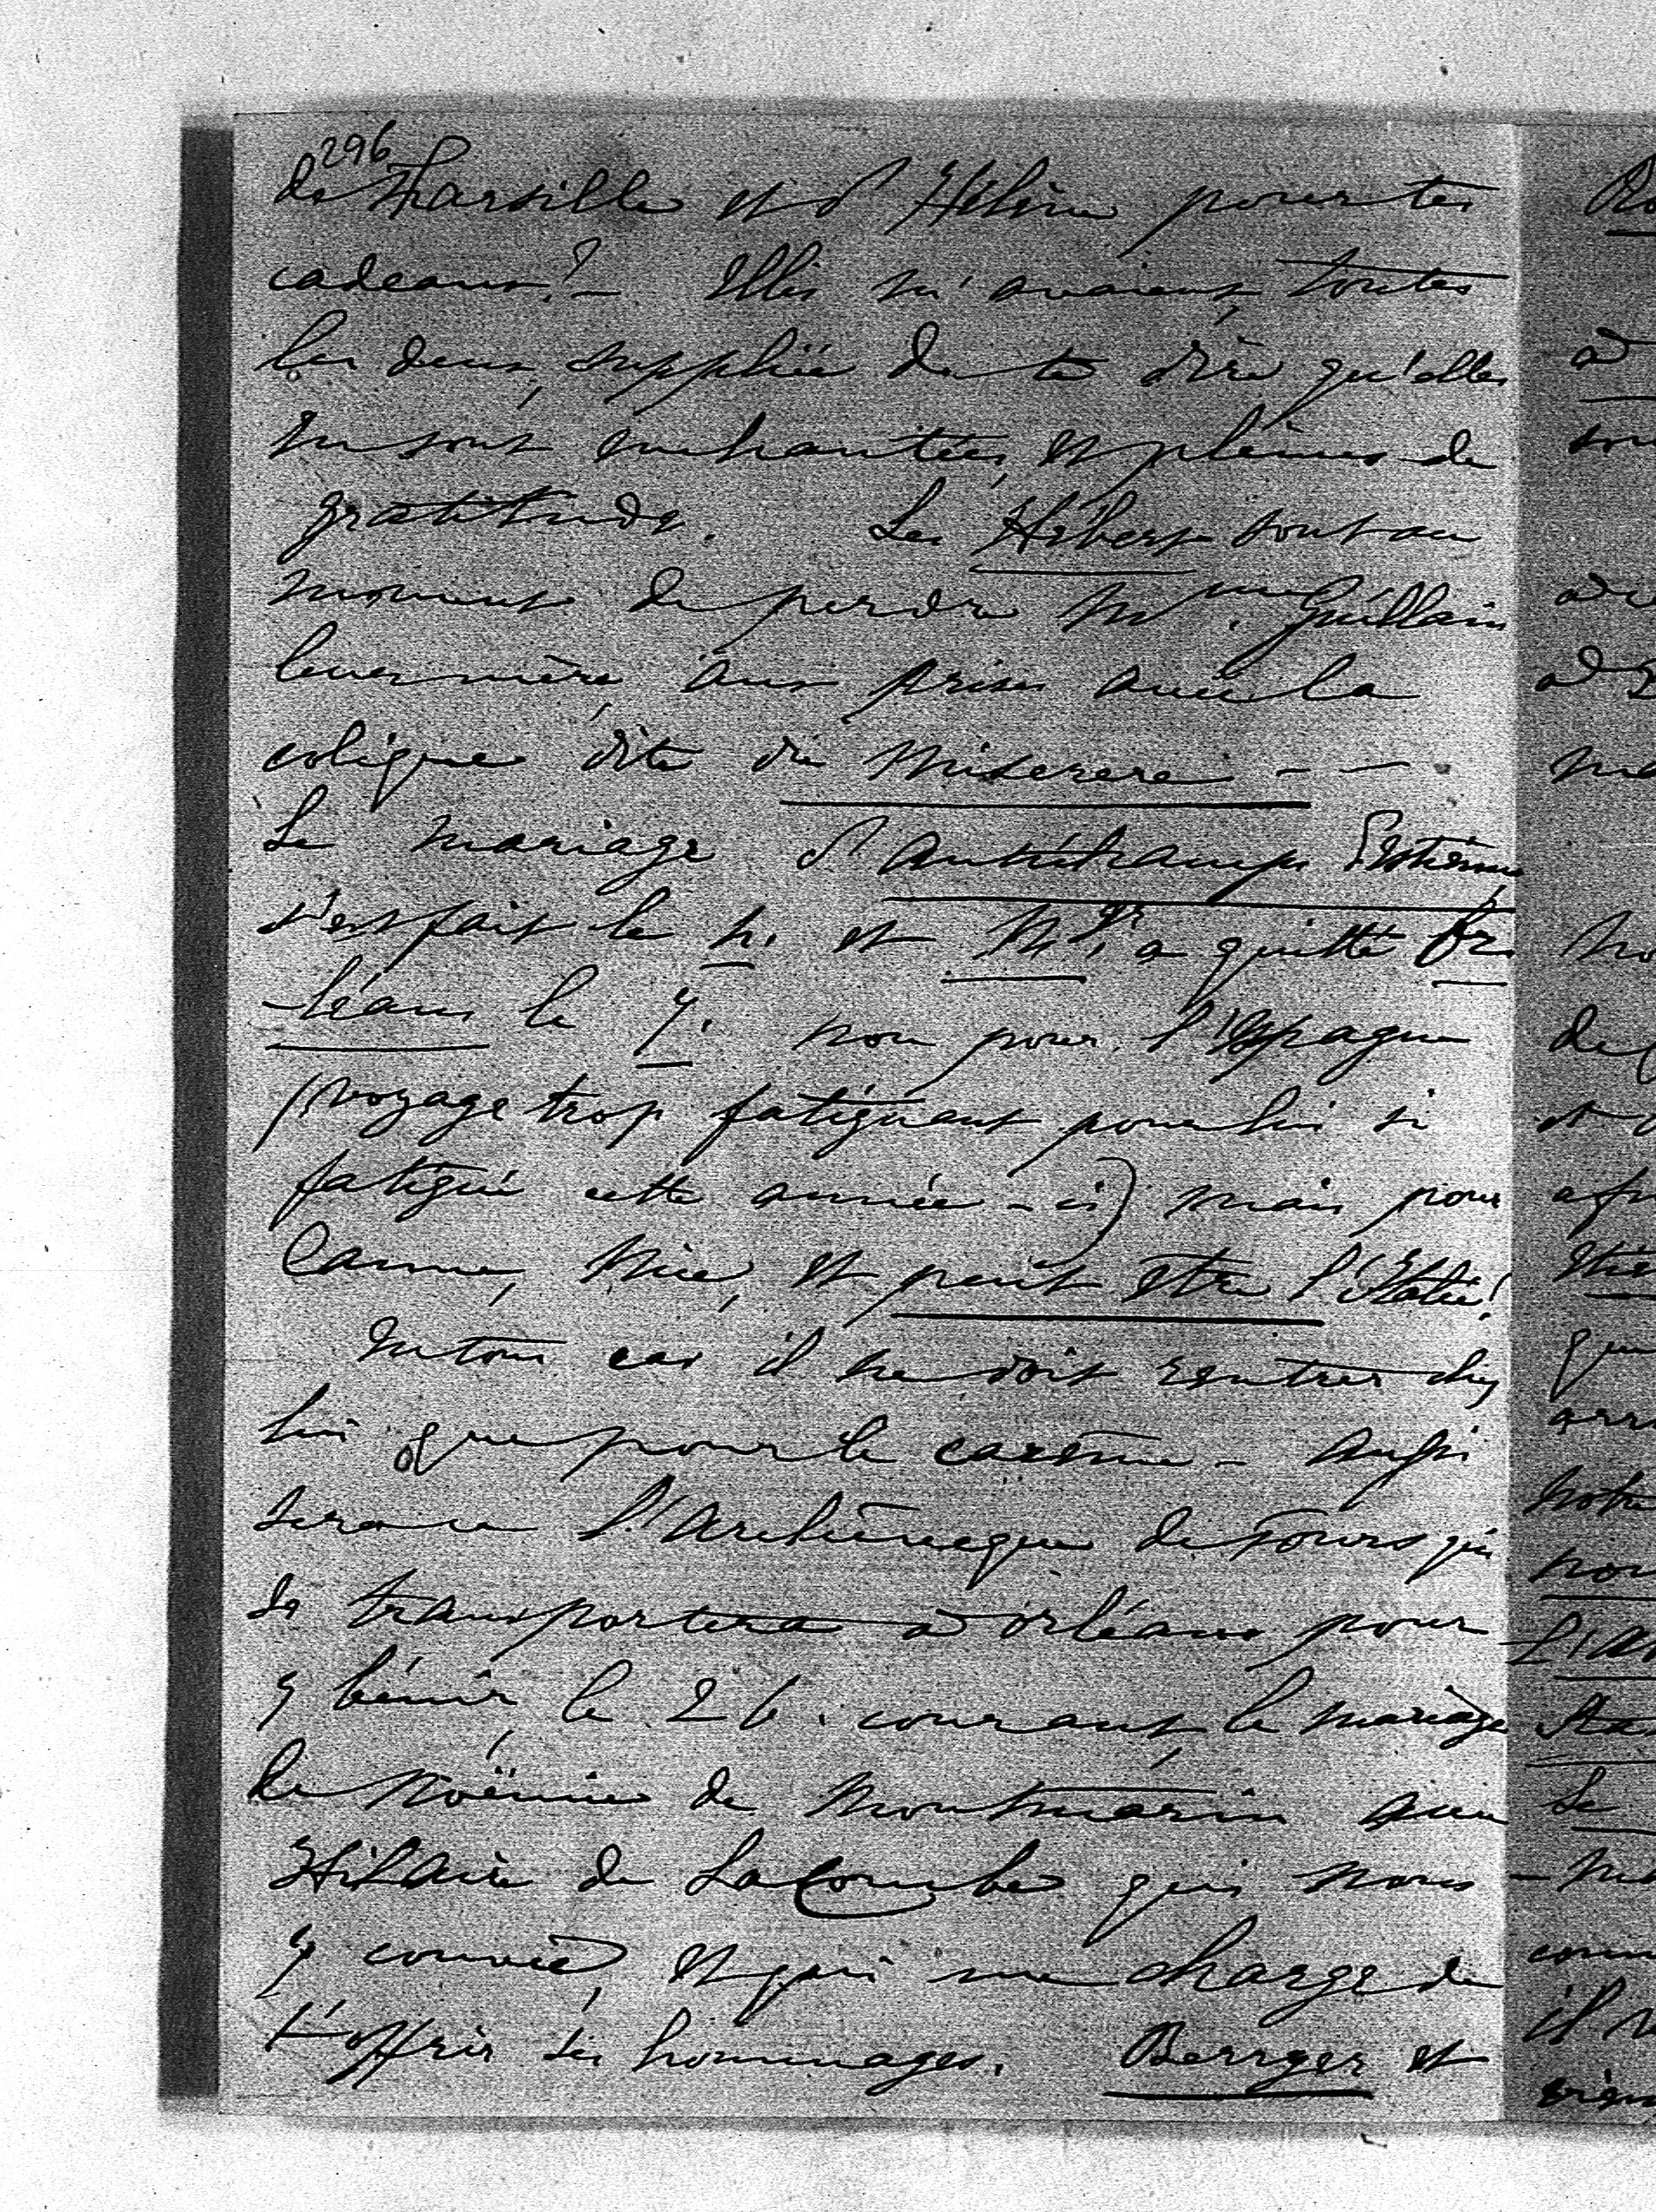 296
de Tharsille et d'Hélène pour tes
cadeaux? – Elles m'avaient, toutes
les deux, suppliée de te dire qu'elles
en sont enchantées, et pleines de
gratitude. Les Hébert sont au
moment de perdre Mme. Guillain
leur mère, aux prises avec la
colique dite de Miserere – –
Le mariage d'Autichamp
s'est fait le et Mgr. a quitté Or
-léans le 7. non pour l'Espagne
(voyage trop fatiguant pour lui si
fatigué cette année-ci) mais pour
Canne, Nice, et peut être l'Italie!
En tout cas il ne doit rentrer chez
lui que pour le carême – Aussi
sera-ce l'Archevêque de Tours qui
se transportera à Orléans pour
y bénir, le 26. courant, le mariage
de Noémie de Montmarin avec
Hilaire de Lacombe qui nous
y convie, et qui me charge de
t'offrir ses hommages. Berryer et